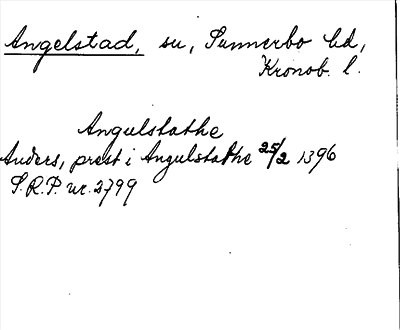 Angelstad, sn, Sunnerbo hd,
Kronob. l.
Angulstathe
Anders, prest i Angulstathe 25/2 1396
S.R.P. nr. 2799